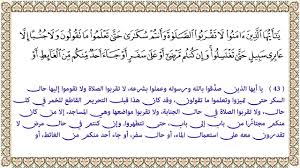 يَٰٓأَيُّهَا ٱلَّذِينَ ءَامَنُوا۟ لَا تَقْرَبُوا۟ ٱلصَّلَوٰةَ وَأَنتُمْ سُكَٰرَىٰ حَتَّىٰ تَعْلَمُوا۟ مَا تَقُولُونَ وَلَا جُنُبًا إِلَّا
عَابِرِى سَبِيلٍ حَتَّىٰ تَغْتَسِلُوا۟ وَإِن كُنتُم مَّرْضَىٰٓ أَوْ عَلَىٰ سَفَرٍ أَوْ جَآءَ أَحَدٌ مِّنكُم مِّنَ ٱلْغَآئِطِ أَوْ
( 43 ) يا أيها الذين صدَّقوا بالله ورسوله وعملوا بشرعه، لا تقربوا الصلاة ولا تقوموا إليها حال
السكر حتى تميزوا وتعلموا ما تقولون، وقد كان هذا قبل التحريم القاطع للخمر في كل
حال، ولا تقربوا الصلاة في حال الجنابة، ولا تقربوا مواضعها وهي المساجد، إلا من كان
منكم مجتازًا من باب إلى باب، حتى تتطهروا. وإن كنتم في حال مرض لا
تقدرون معه على استعمال الماء، أو حال سفر، أو جاء أحد منكم من الغائط، أو